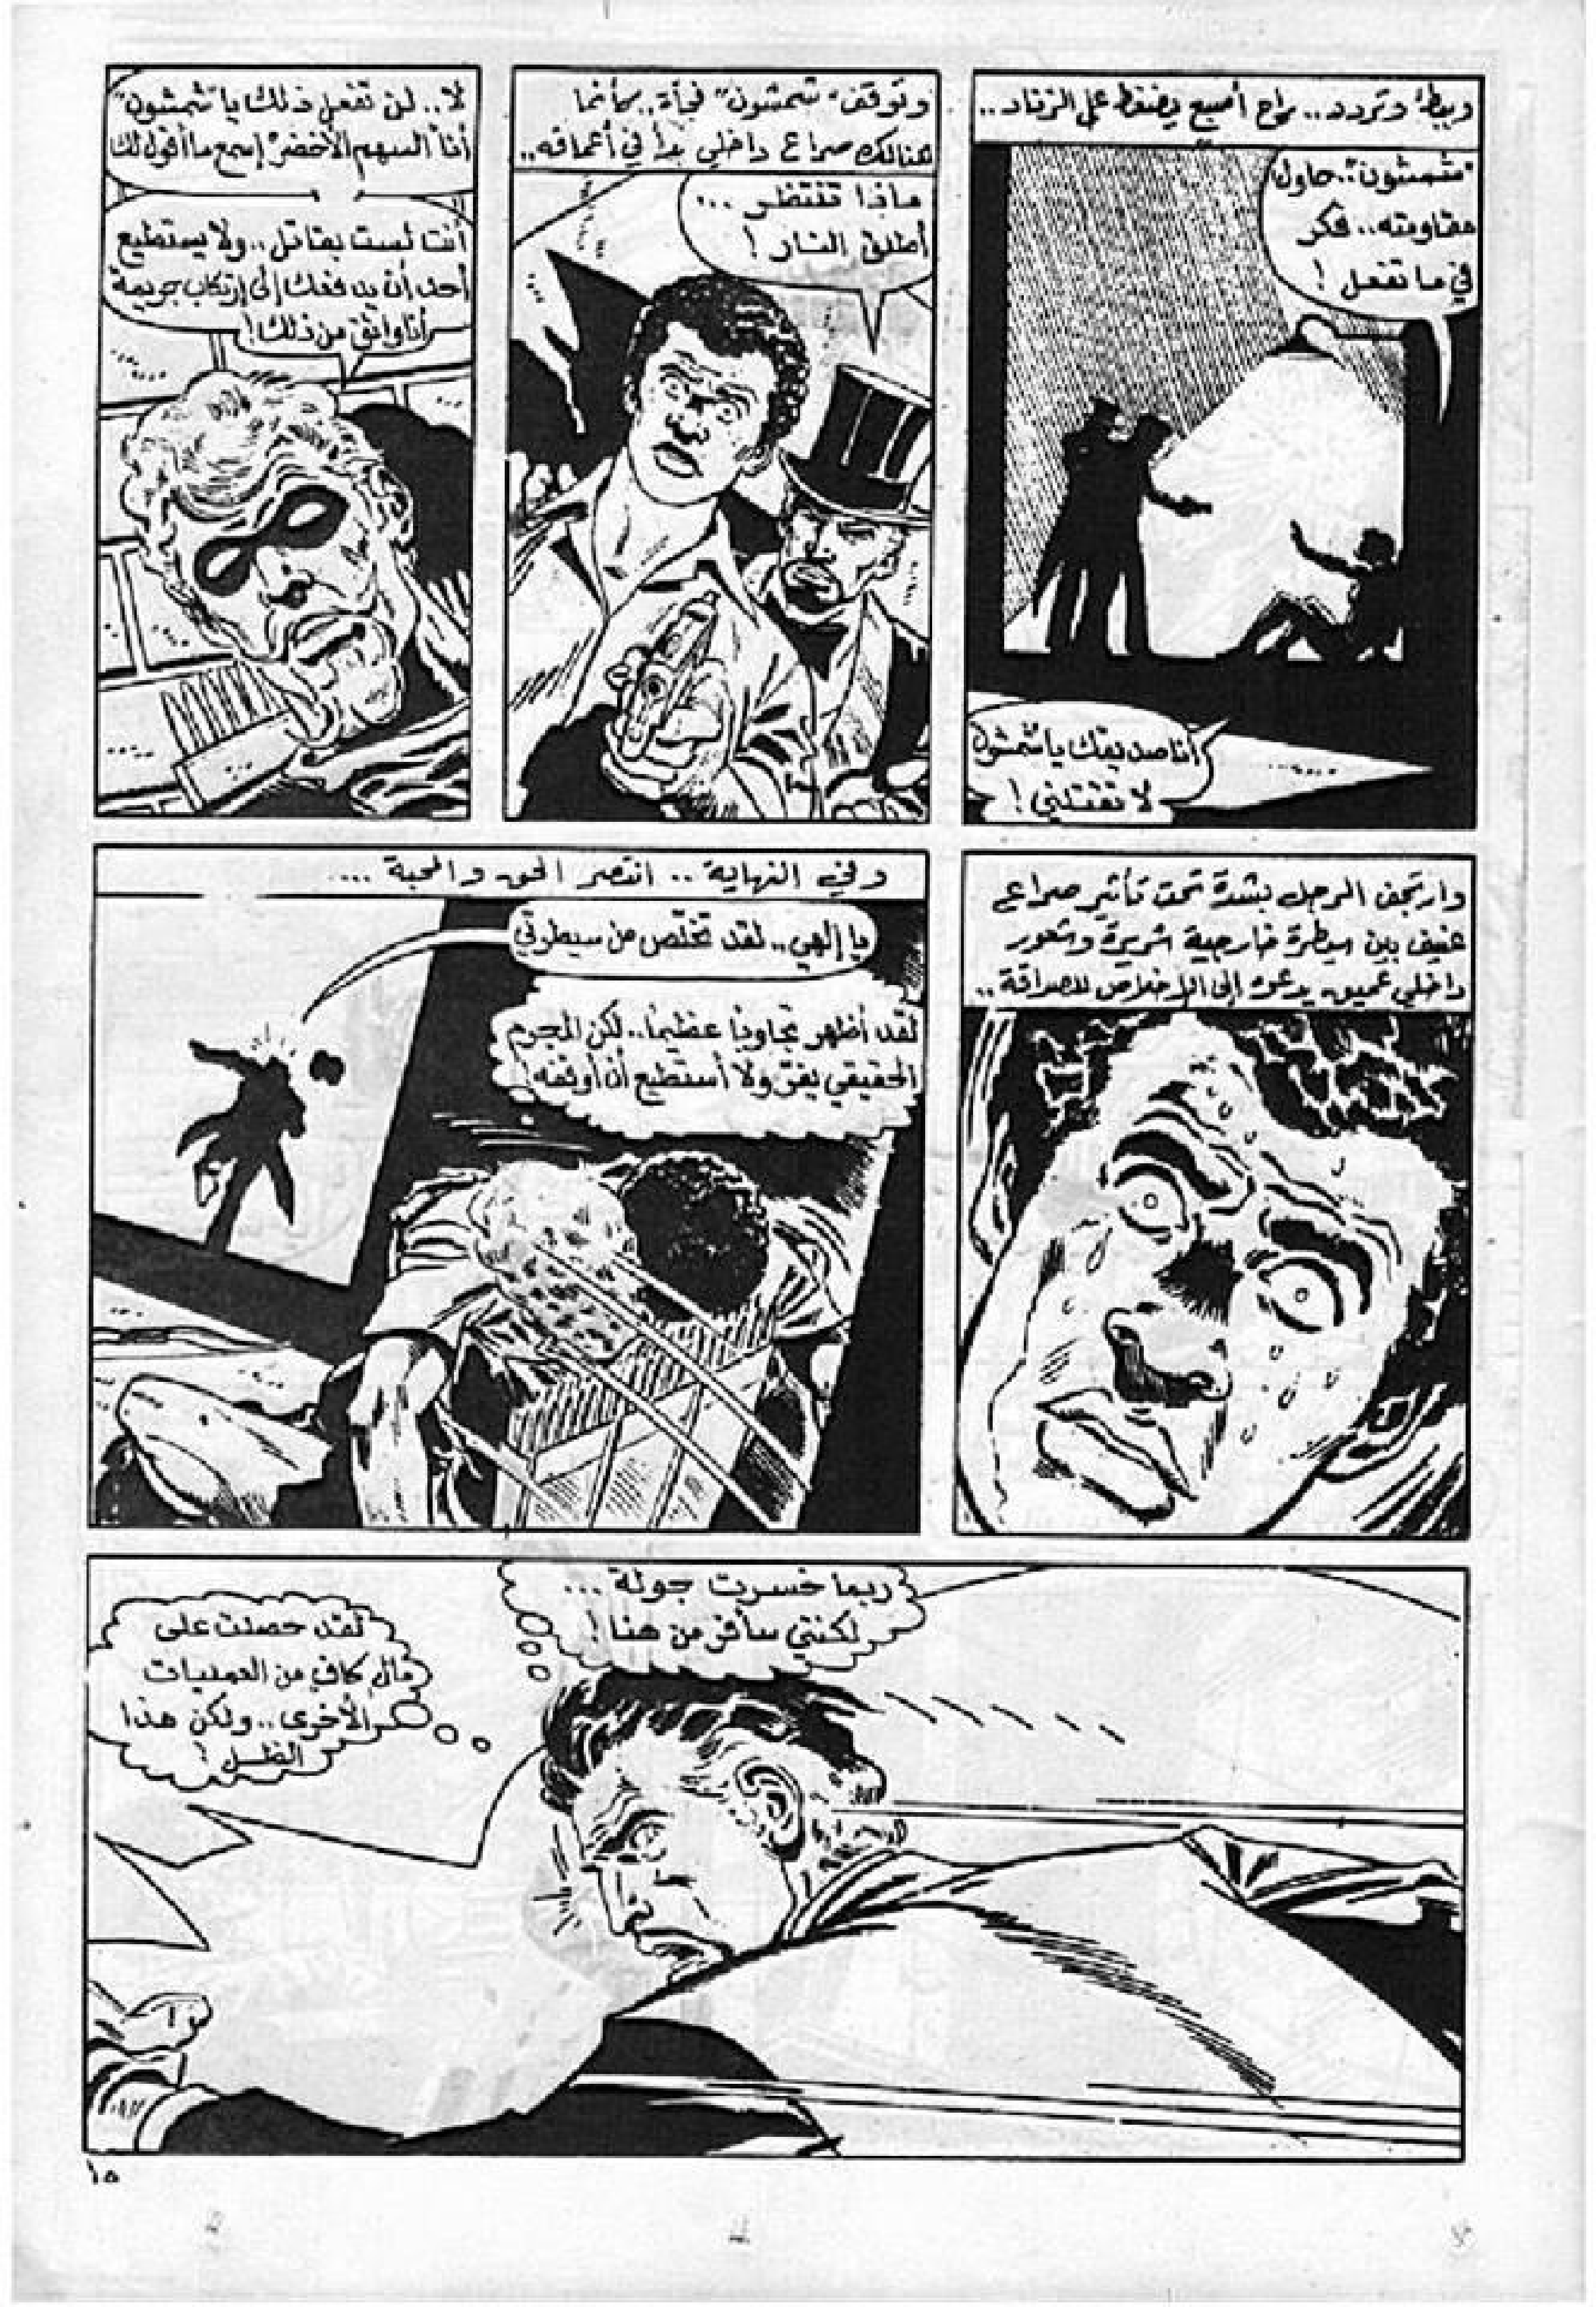 وببطء وتردد.. راح أصبع يضغط على الزناد..
"شمشون".. حاول
مقاومته.. فكر
في ما تفعل !
أنا صديقك يا شمشون
لا تقتلني !
وتوقف "شمشون" فجأة.. كأنما
هنالك صراع داخلي بدأ في أعماقه..
ماذا تنتظر ...
أطلق النار !
لا.. لن تفعل ذلك يا "شمشون"
أنا "السهم الأخضر" إسمع ما أقول لك
أنت لست بقاتل.. ولا يستطيع
أحد أن يدفعك إلى إرتكاب جريمة
أنا واثق من ذلك !
وارتجف الرجل بشدة تحت تأثير صراع
عنيف بين سيطرة خارجية شريرة وشعور
داخلي عميق يدعوه إلى الإخلاص للصداقة..
وفي النهاية .. انتصر الحق والمحبة ....
يا إلهي.. لقد تخلّص من سيطرتي
لقد أظهر تجاوبا عظيما.. لكن المجرم
الحقيقي يفرّ ولا أستطيع أن أوقفه !
ربما خسرت جولة ...
لكنني سأفر من هنا !
لقد حصلت على
مال كافٍ من العمليات
الأخرى.. ولكن هذا
الظل !
١٥